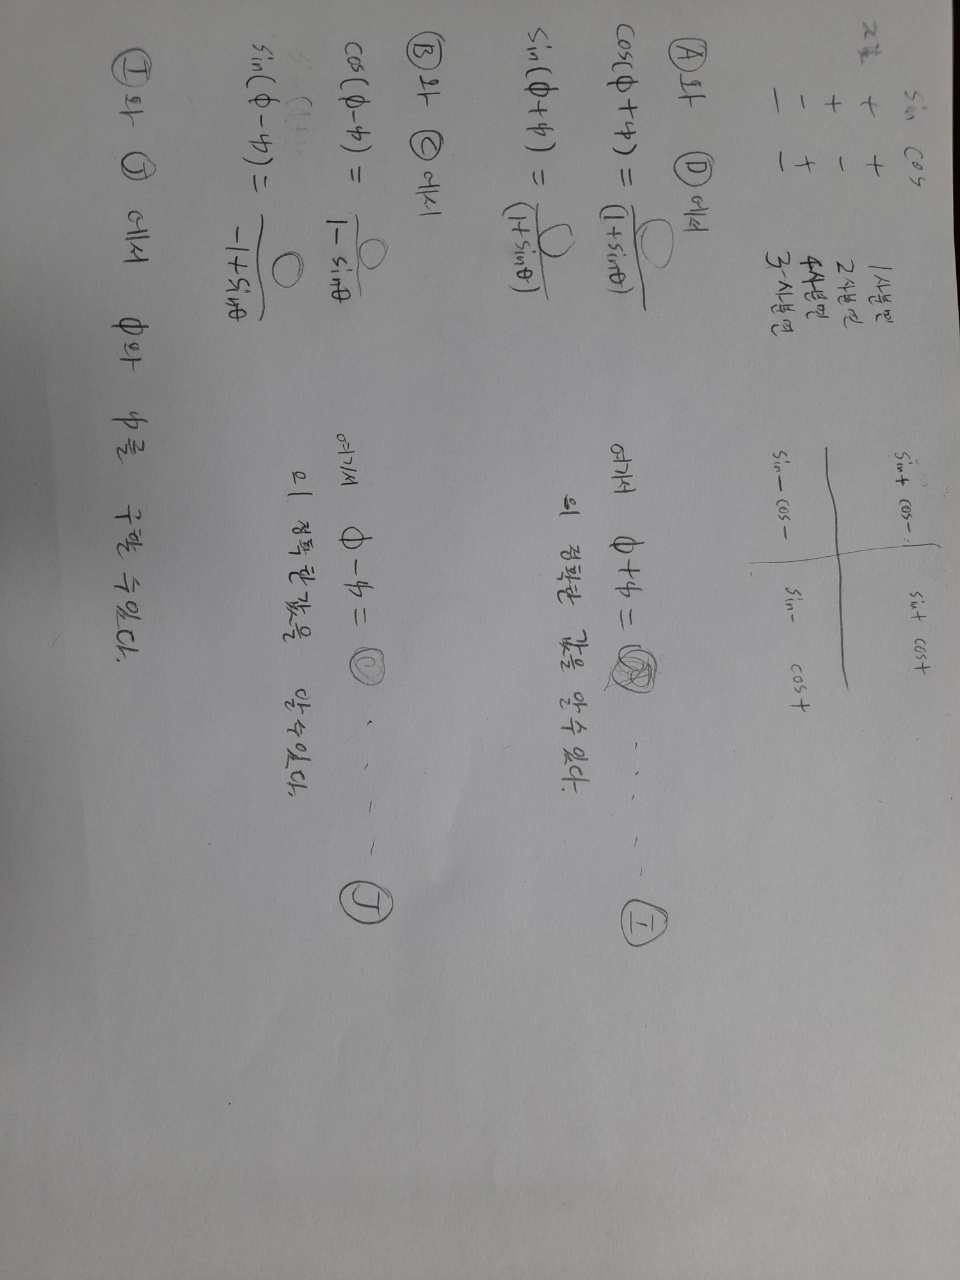 sin cos
+ +
+ -
- +
- -
1사분면
2사분면
4사분면
3사분면
sin+ cos-
sin+ cos+
sin- cos-
sin- cos+
Ⓐ와 Ⓓ에서
cos(φ+ψ) = ◯/(1+sinθ)
여기서 φ+ψ = . . . . Ⓘ
sin(φ+ψ) = ◯/(1+sinθ)
의 정확한 값을 알 수 있다.
Ⓑ와 Ⓒ에서
cos(φ-ψ) = ◯/1-sinθ
여기서 φ-ψ = . . . . Ⓙ
sin(φ-ψ) = ◯/-1+sinθ
의 정확한 값을 알 수 있다.
Ⓘ와 Ⓙ에서 φ와 ψ를 구할 수 있다.